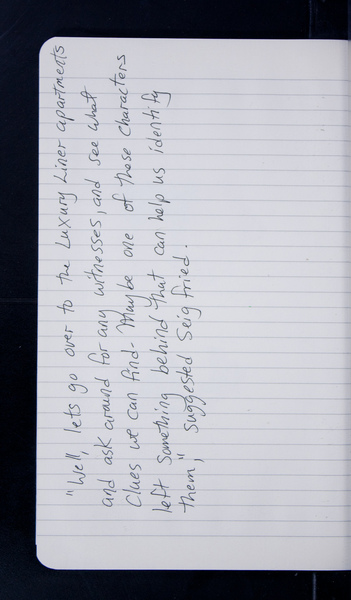 "Well, lets go over to the Luxury Liner apartments
and ask around for any witnesses, and see what
Clues we can find. Maybe one of those characters
left something behind that can help us identify
them," suggested Seig fried.